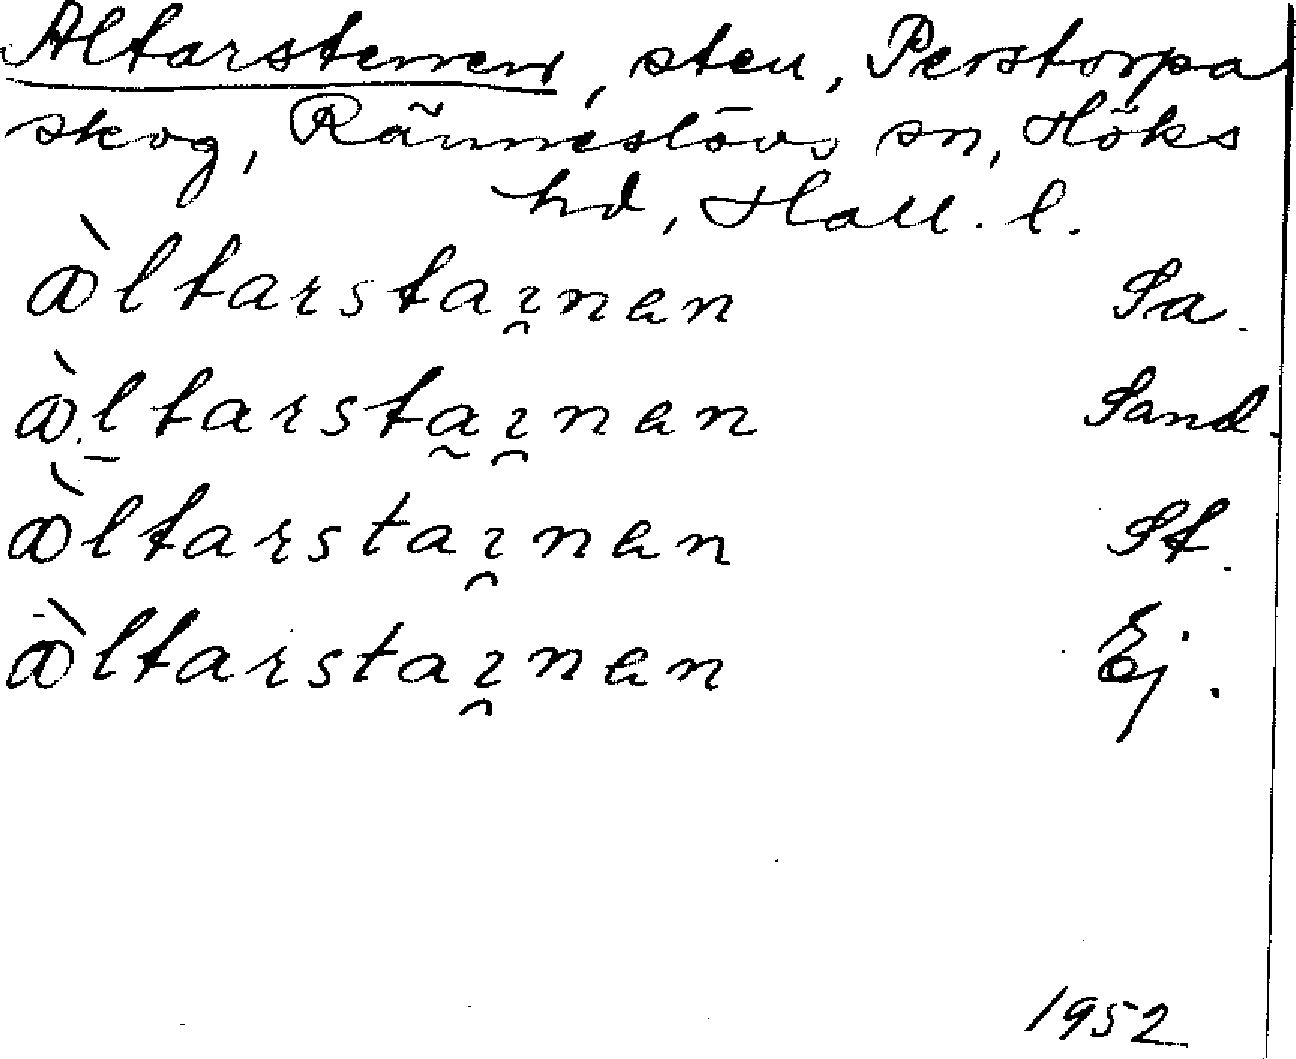 Altarstenen, sten, Perstorpa
skog, Ränneslövs sn, Höks
hd, Hall. l.
àltarstaı̯nen Sa.
àltarsta̰ı̯nen Sand.
àltarstaı̯nen St.
àltarstaı̯nen Ej.
1952